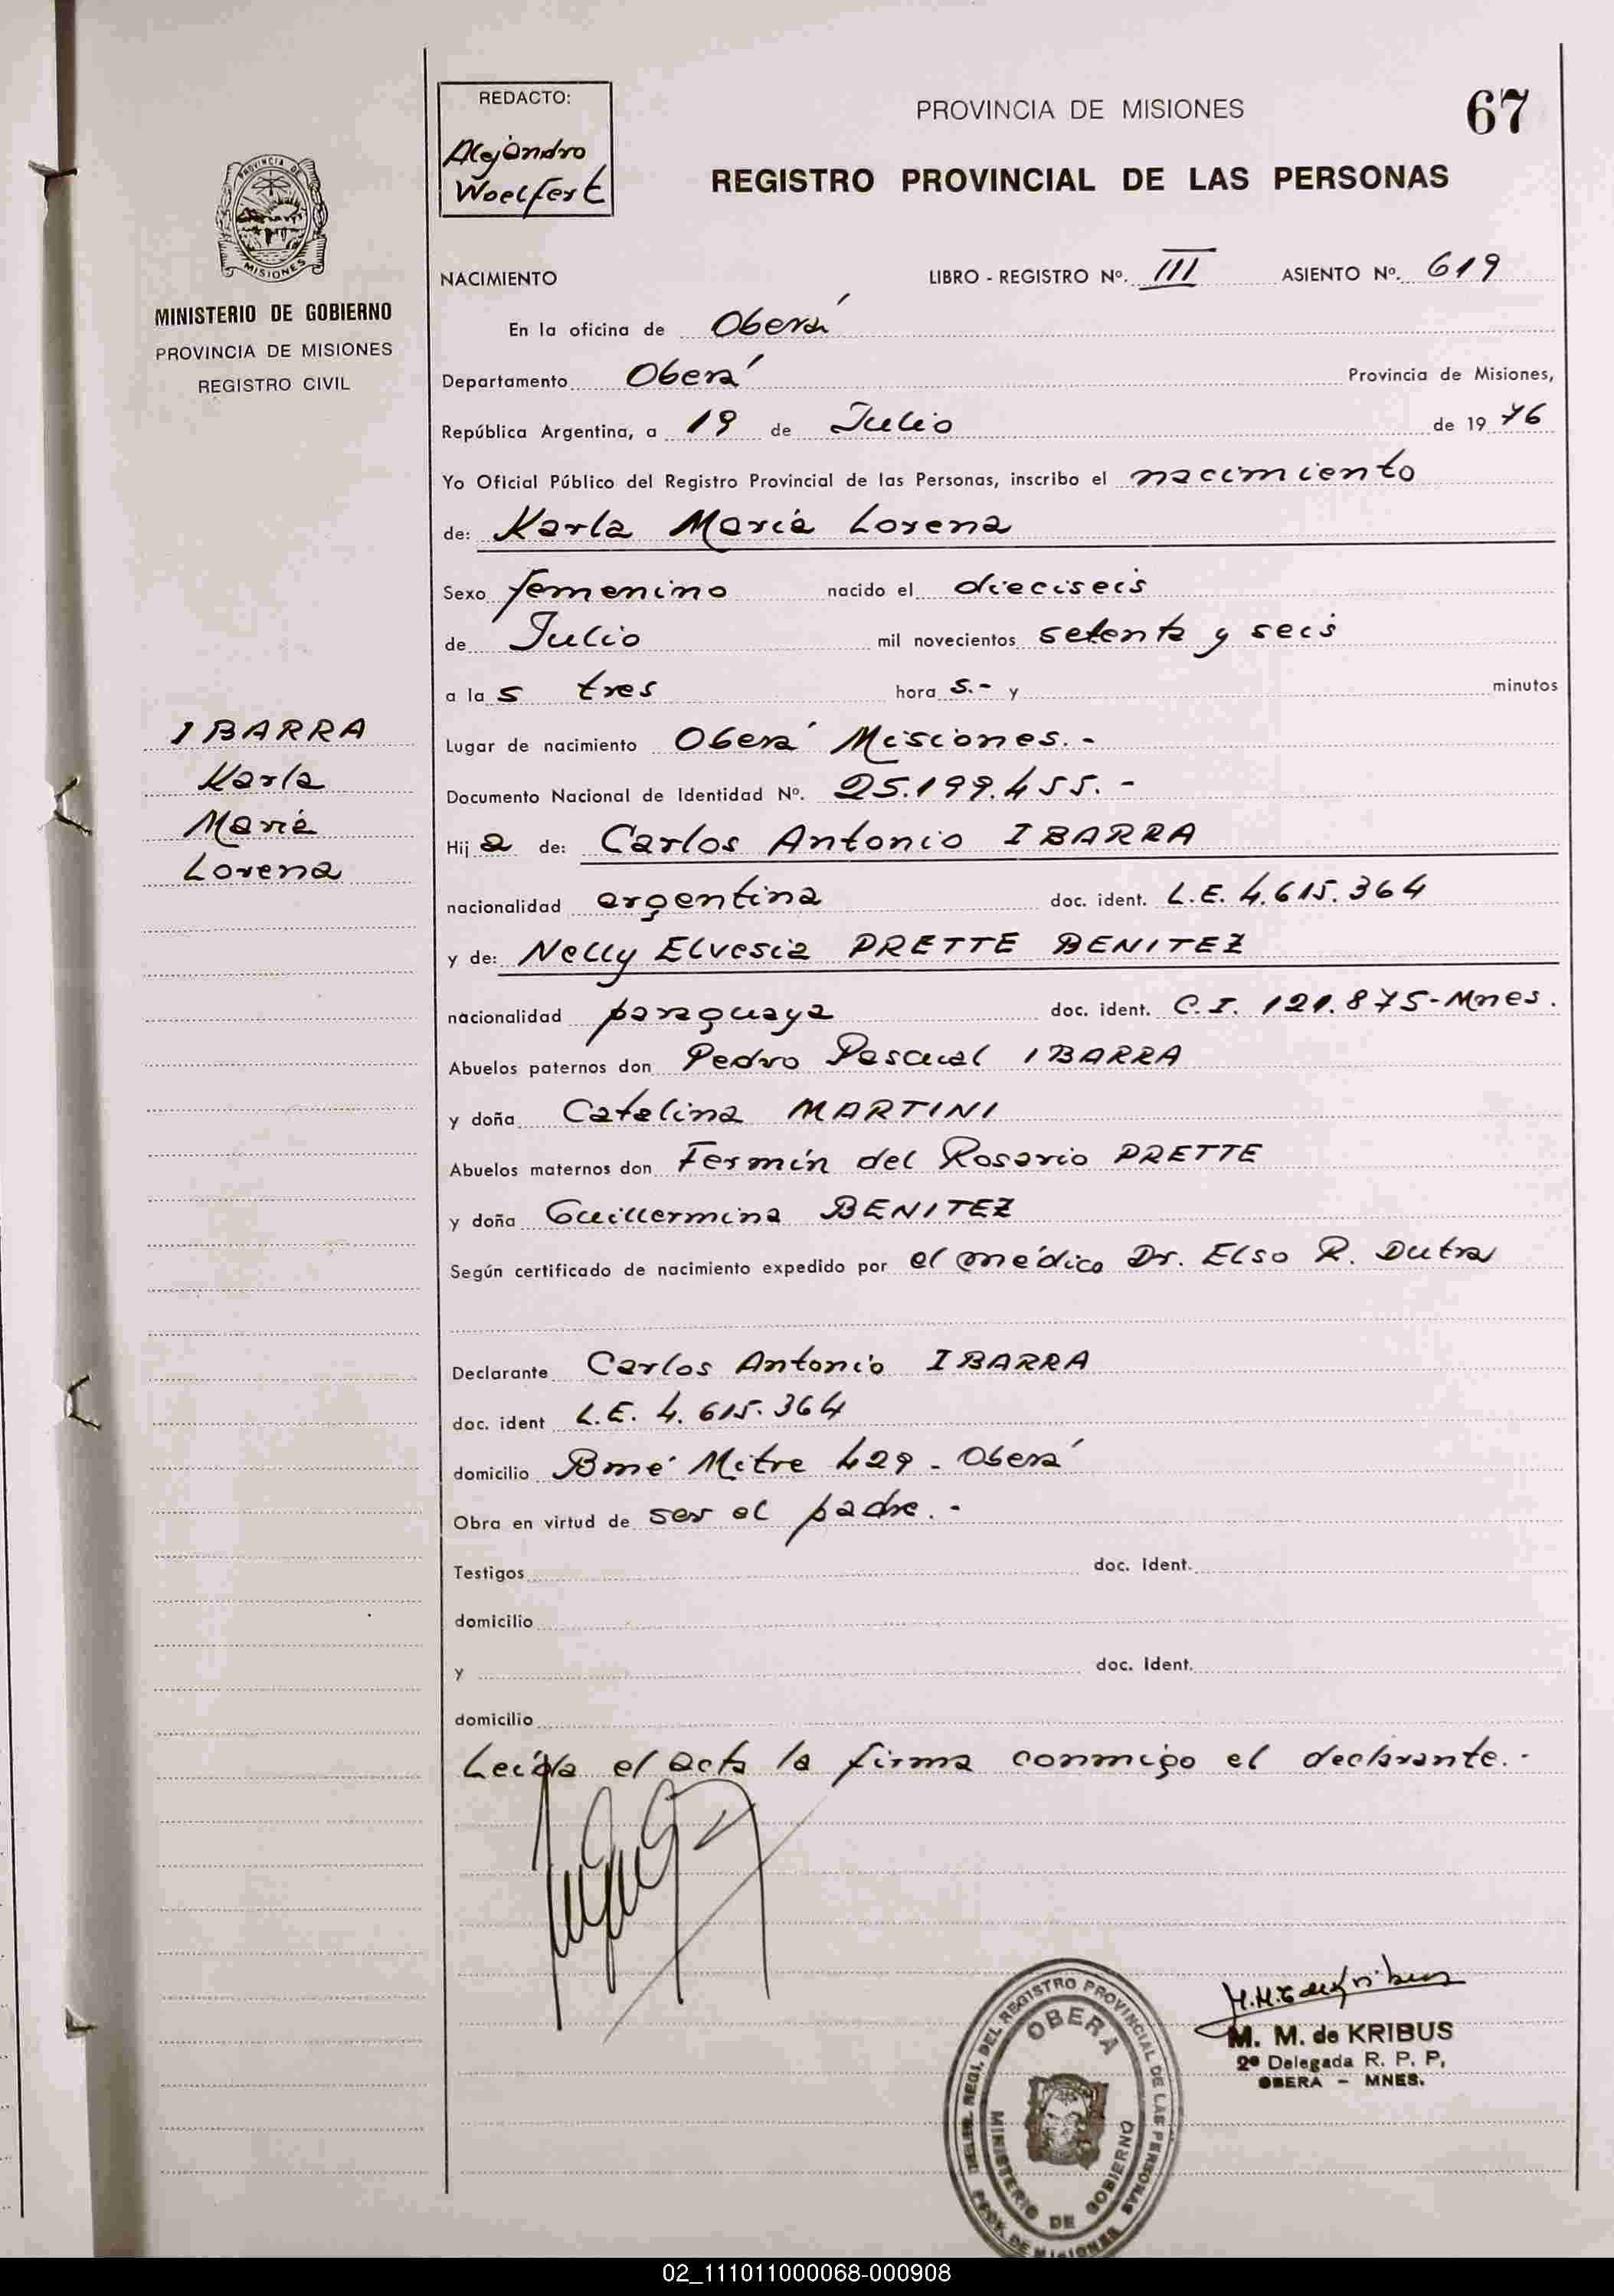 REDACTO:
Alejandro
Woelfert
PROVINCIA DE MISIONES
67
REGISTRO PROVINCIAL DE LAS PERSONAS
PROVINCIA DE
MISIONES
MINISTERIO DE GOBIERNO
PROVINCIA DE MISIONES
REGISTRO CIVIL
NACIMIENTO LIBRO - REGISTRO Nº. III ASIENTO Nº. 619
En la oficina de Oberá
Departamento Oberá Provincia de Misiones,
República Argentina, a 19 de Julio de 19 76
Yo Oficial Público del Registro Provincial de las Personas, inscribo el nacimiento
de: Karla María Lorena
Sexo femenino nacido el dieciseis
de Julio mil novecientos setenta y seis
a la s tres hora s.- y minutos
IBARRA
Karla
María
Lorena
Lugar de nacimiento Oberá Misiones.-
Documento Nacional de Identidad Nº. 25.199.455.-
Hij a de: Carlos Antonio IBARRA
nacionalidad argentina doc. ident. L.E. 4.615.364
y de: Nelly Elvesia PRETTE BENITEZ
nacionalidad paraguaya doc. ident. C.I. 121.875-Mnes.
Abuelos paternos don Pedro Pascual IBARRA
y doña Catalina MARTINI
Abuelos maternos don Fermín del Rosario PRETTE
y doña Guillermina BENITEZ
Según certificado de nacimiento expedido por el médico Dr. Elso R. Dutra
Declarante Carlos Antonio IBARRA
doc. ident L.E. 4.615.364
domicilio Bmé Mitre 429 - Oberá
Obra en virtud de ser el padre.-
Testigos doc. ident.
domicilio
y doc. ident.
domicilio
Leída el acta la firma conmigo el declarante.-
M. M. de KRIBUS
2ª Delegada R. P. P.
OBERA - MNES.
DELEG. REGI. DEL REGISTRO PROVINCIAL DE LAS PERSONAS
OBERA
MINISTERIO DE GOBIERNO
PROV. DE MISIONES
02_111011000068-000908